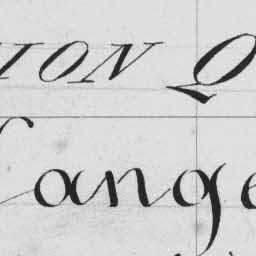 ION Q
lange